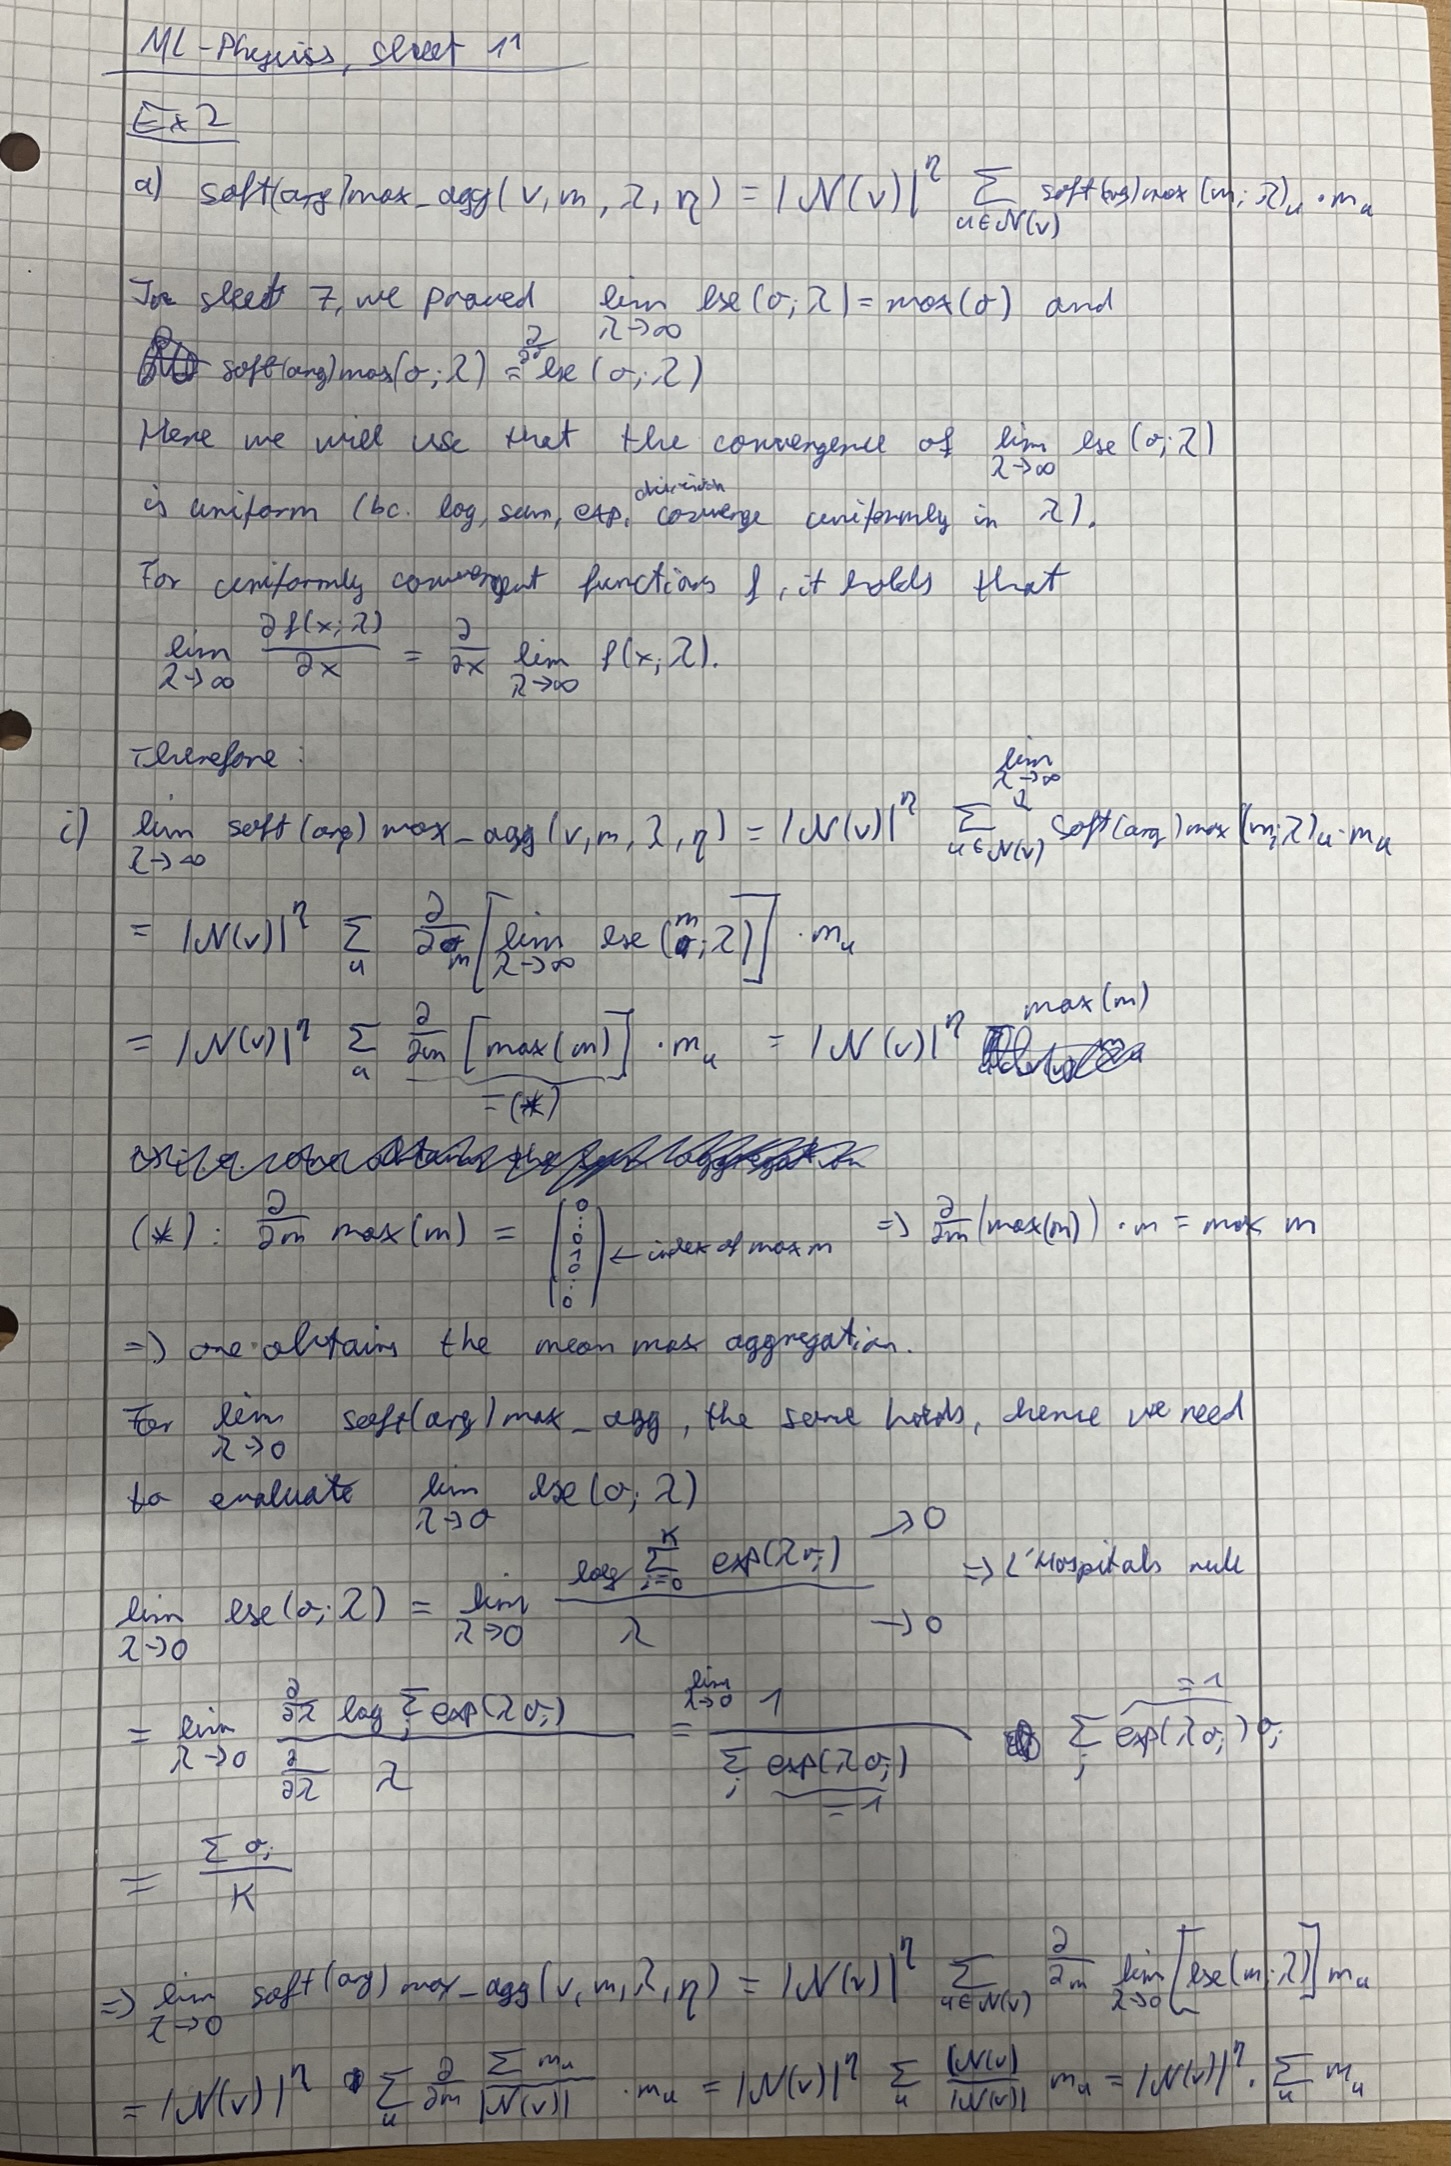 ML-Physics, sheet 11
Ex 2
a) soft(arg)max_agg(v, m, λ, η) = |N(v)|^η Σ_{u∈N(v)} soft(arg)max(m; λ)_u · m_u
In sheet 7, we proved lim_{λ→∞} lse(σ; λ) = max(σ) and
soft(arg)max(σ; λ) = ∂/∂σ lse(σ; λ)
Here we will use that the convergence of lim_{λ→∞} lse(σ; λ)
is uniform (bc. log, sum, exp, division converge uniformly in λ).
For uniformly convergent functions f, it holds that
lim_{λ→∞} ∂f(x; λ)/∂x = ∂/∂x lim_{λ→∞} f(x; λ).
Therefore:
i) lim_{λ→∞} soft(arg)max_agg(v, m, λ, η) = |N(v)|^η Σ_{u∈N(v)} lim_{λ→∞} soft(arg)max(m; λ)_u · m_u
= |N(v)|^η Σ_u ∂/∂m [lim_{λ→∞} lse(m; λ)] · m_u
= |N(v)|^η Σ_u ∂/∂m [max(m)] · m_u = |N(v)|^η max(m)
= (*)
(*): ∂/∂m max(m) = (0 : 0 1 0 : 0) ← index of max m ⇒ ∂/∂m (max(m)) · m = max m
⇒ one obtains the mean max aggregation.
For lim_{λ→0} soft(arg)max_agg, the same holds, hence we need
to evaluate lim_{λ→0} lse(σ; λ)
lim_{λ→0} lse(σ; λ) = lim_{λ→0} log Σ_{j=0}^K exp(λσ_j) / λ →0 →0 ⇒ L'Hospitals rule
= lim_{λ→0} ∂/∂λ log Σ_j exp(λσ_j) / ∂/∂λ λ = lim_{λ→0} 1 / Σ_j exp(λσ_j) (=1) Σ_j exp(λσ_j) (=1) σ_j
= Σ σ_j / K
⇒ lim_{λ→0} soft(arg)max_agg(v, m, λ, η) = |N(v)|^η Σ_{u∈N(v)} ∂/∂m lim_{λ→0} [lse(m; λ)] m_u
= |N(v)|^η Σ_u ∂/∂m Σ m_u / |N(v)| · m_u = |N(v)|^η Σ_u |N(v)|/|N(v)| m_u = |N(v)|^η · Σ_u m_u